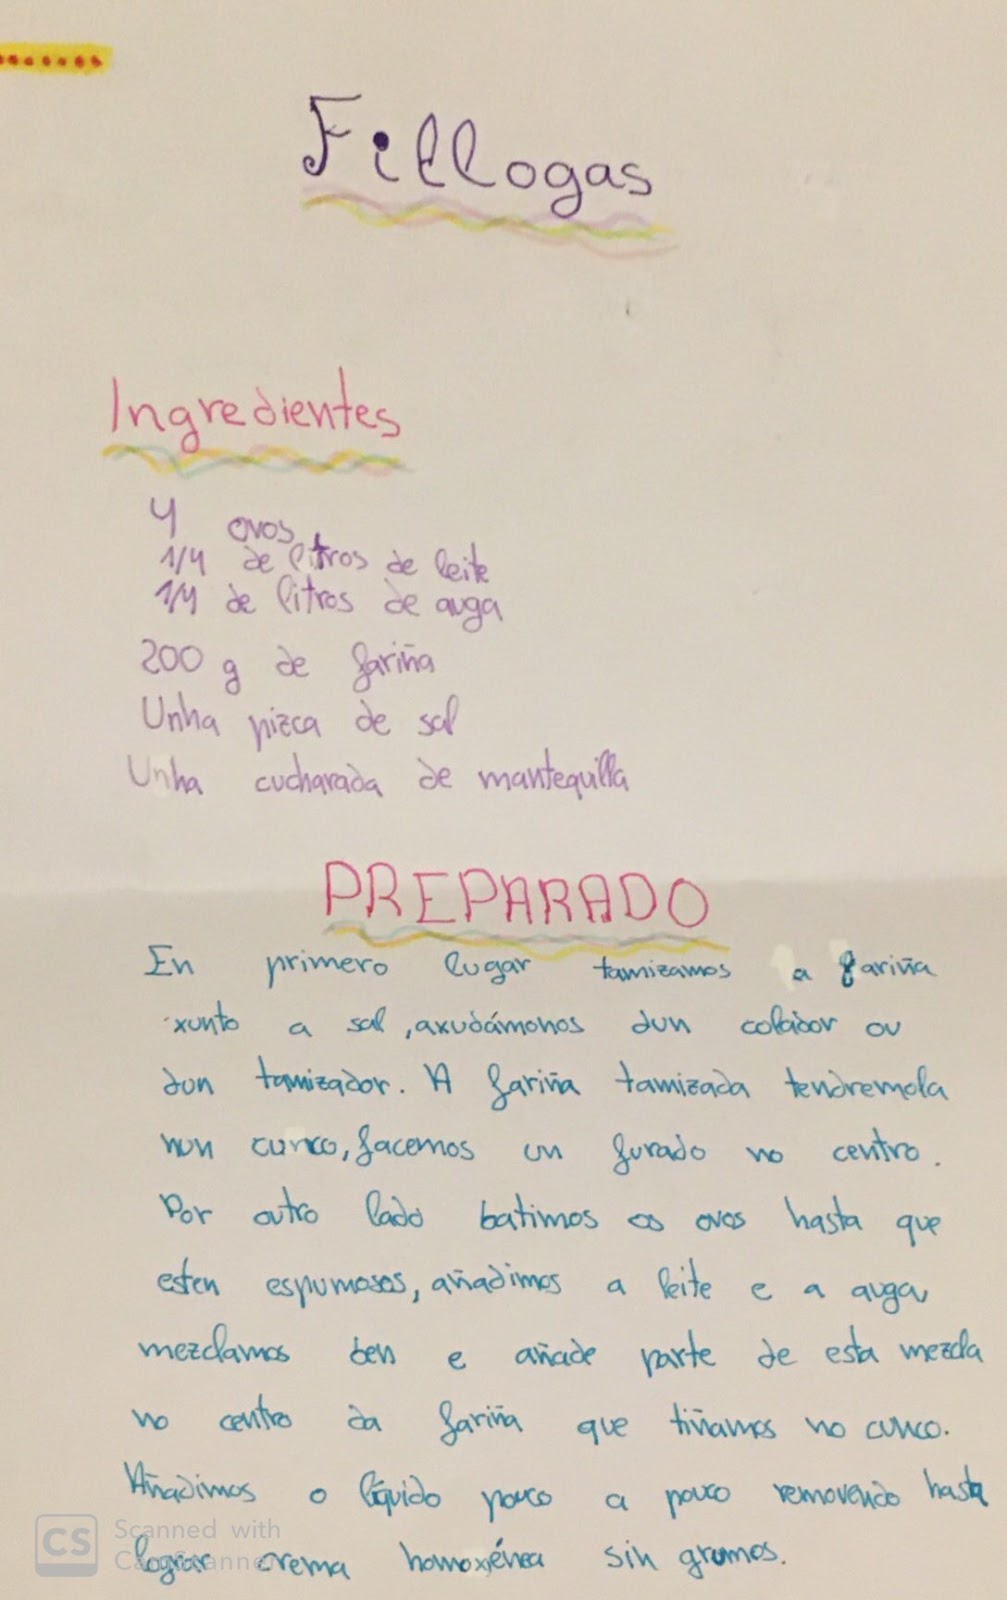 Fillogas
Ingredientes
4 ovos
1/4 de litros de leite
1/4 de litros de auga
200 g de fariña
Unha pizca de sal
Unha cucharada de mantequilla
PREPARADO
En primero lugar tamizamos a fariña
xunto a sal, axudámonos dun colador ou
dun tamizador. A fariña tamizada tendremola
nun cunco, facemos un furado no centro.
Por outro lado batimos os ovos hasta que
esten espumosos, añadimos a leite e a auga,
mezclamos ben e añade parte de esta mezcla
no centro da fariña que tiñamos no cunco.
Añadimos o líquido pouco a pouco removendo hasta
lograr crema homoxénea sin grumos.
CS
Scanned with
CamScanner